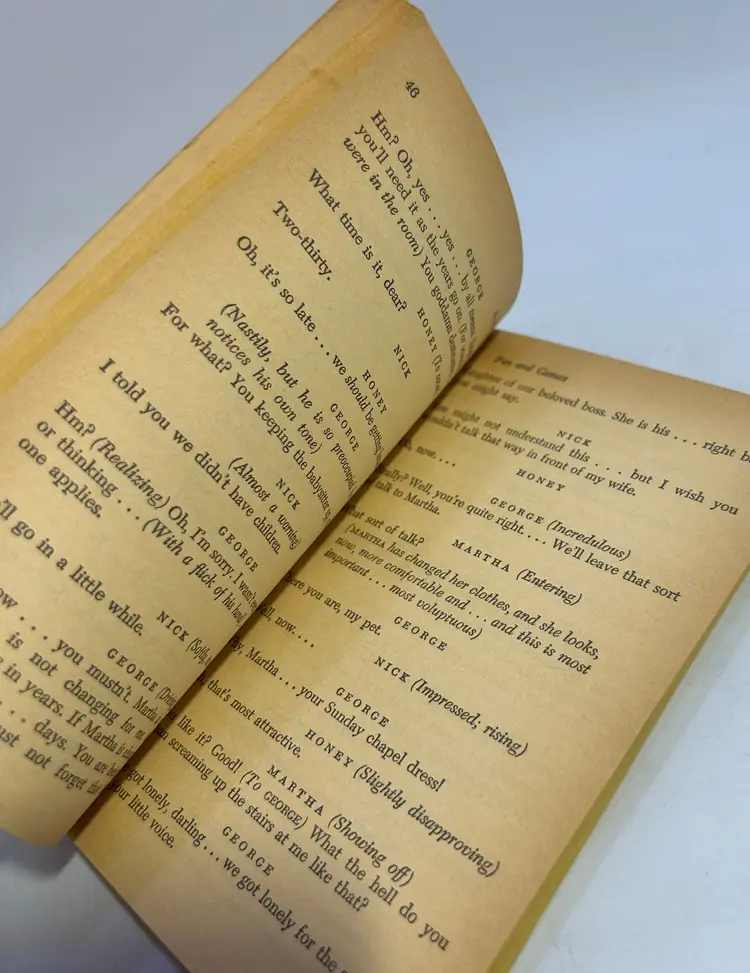 46
GEORGE
Hm? Oh, yes . . . yes . . . by all means
you'll need it as the years go on.
were in the room) You goddamn
HONEY (To
What time is it, dear?
NICK
Two-thirty.
HONEY
Oh, it's so late . . . we should be getting
GEORGE
(Nastily, but he is so preoccupied
notices his own tone)
For what? You keeping the babysitter
NICK
(Almost a warning)
I told you we didn't have children.
GEORGE
Hm? (Realizing) Oh, I'm sorry. I wasn't
or thinking . . . (With a flick of his hand)
one applies.
NICK (Softly,
'll go in a little while.
GEORGE
. . . you mustn't. Martha
is not changing for me.
in years. If Martha is
. . . days. You are
ust not forget
Fun and Games
of our beloved boss. She is his . . . right
might say.
NICK
might not understand this . . . but I wish you
wouldn't talk that way in front of my wife.
HONEY
now. . . .
GEORGE (Incredulous)
Well, you're quite right. . . . We'll leave that sort
talk to Martha.
MARTHA (Entering)
sort of talk?
(MARTHA has changed her clothes, and she looks,
now, more comfortable and . . . and this is most
important . . . most voluptuous)
GEORGE
here you are, my pet.
NICK (Impressed; rising)
well, now. . . .
GEORGE
Martha . . . your Sunday chapel dress!
HONEY (Slightly disapproving)
that's most attractive.
MARTHA (Showing off)
like it? Good! (To GEORGE) What the hell do you
screaming up the stairs at me like that?
GEORGE
got lonely, darling . . . we got lonely for the
your little voice.